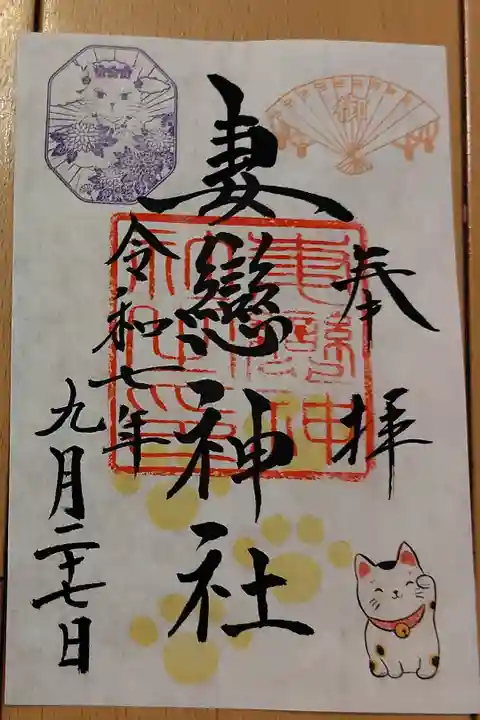 奉拝
妻戀神社
令和七年
九月二十七日
御